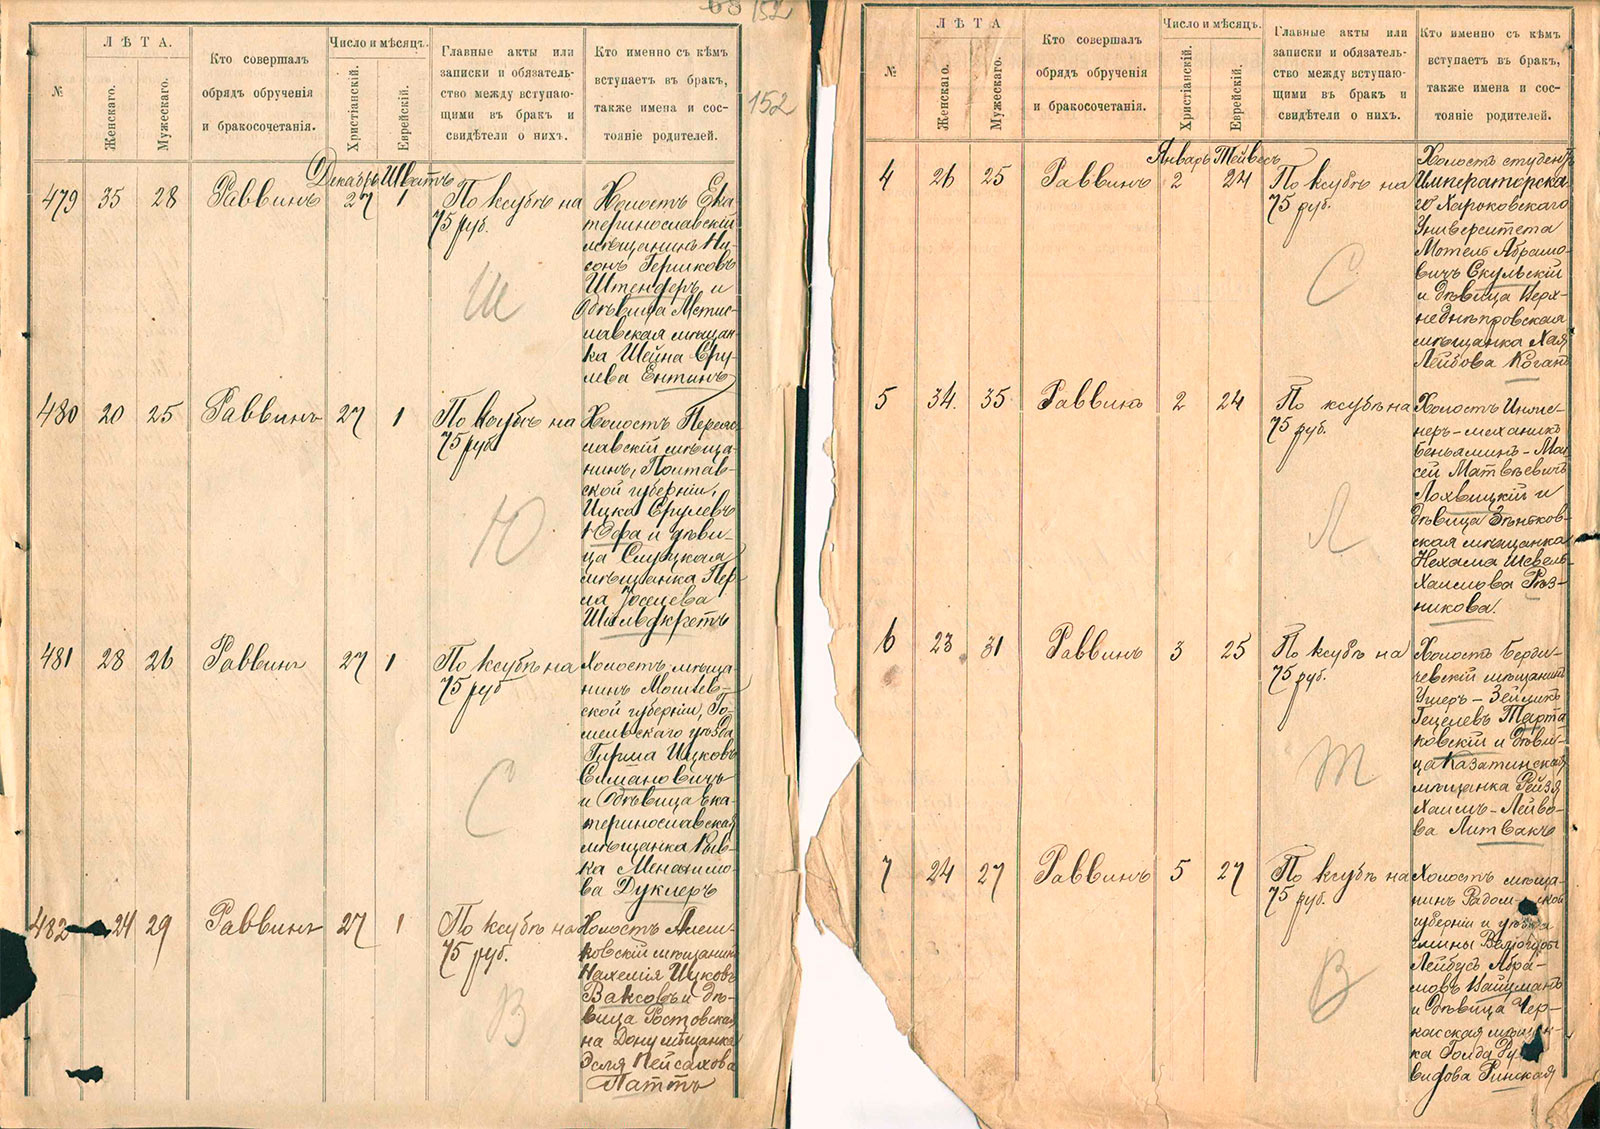 68 152
№
ЛѢТА.
Женскаго.
Мужескаго.
Кто совершалъ
обрядъ обрученія
и бракосочетанія.
Число и мѣсяцъ.
Христіанскій.
Еврейскій.
Главные акты или
записки и обязатель-
ство между вступаю-
щими въ бракъ и
свидѣтели о нихъ.
Кто именно съ кѣмъ
вступаетъ въ бракъ,
также имена и сос-
тояніе родителей.
152
Декабрь Шватъ
479 35 28 Раввинъ 27 1 По ксубѣ на
75 руб.
Ш
Холостъ Ека-
теринославскій
мѣщанинъ Ну-
сонъ Гершковъ
Штендеръ и
дѣвица Мстис-
лавская мѣщан-
ка Шейна Сру-
лева Ентинъ
480 20 25 Раввинъ 27 1 По ксубѣ на
75 руб
Ю
Холостъ Переяс-
лавскій мѣща-
нинъ, Полтав-
ской губерніи,
Ицка Срулевъ
Юфа и дѣви-
ца Слуцкая
мѣщанка Пер-
ла Іоселева
Шильдкретъ
481 28 26 Раввинъ 27 1 По ксубѣ на
75 руб
С
Холостъ, мѣща-
нинъ Могилев-
ской губерніи, Го-
мельскаго уѣзда
Гирша Ицковъ
Симановичъ
и дѣвица Ека-
теринославская
мѣщанка Рив-
ка Менахимо-
ва Дуклеръ
482 24 29 Раввинъ 27 1 По ксубѣ на
75 руб.
В
Холостъ Алеш-
ковскій мѣщанинъ
Нахемія Ицковъ
Ваксовъ и дѣ-
вица Ростовская
на Дону мѣщанка
Эсля Пейсахова
Паттъ
№
ЛѢТА
Женскаго.
Мужескаго.
Кто совершалъ
обрядъ обрученія
и бракосочетанія.
Число и мѣсяцъ.
Христіанскій.
Еврейскій.
Главные акты или
записки и обязатель-
ство между вступаю-
щими въ бракъ и
свидѣтели о нихъ.
Кто именно съ кѣмъ
вступаетъ въ бракъ,
также имена и сос-
тояніе родителей.
Январь Тейвесъ
4 26 25 Раввинъ 2 24 По ксубѣ на
75 руб.
С
Холостъ студентъ
Императорска-
го Харьковскаго
Университета
Мотель Абрамо-
вичъ Скульскій
и дѣвица Верх-
недѣпровская
мѣщанка Хая
Лейбова Коганъ
5 34. 35 Раввинъ 2 24 По ксубѣ на
75 руб.
Л
Холостъ Инже-
неръ-механикъ
Беньяминъ-Мои-
сей Матвѣевичъ
Лохвицкій и
дѣвица Зѣньков-
ская мѣщанка
Нехама Шевель-
Хаимова Рѣз-
никова.
6 23 31 Раввинъ 3 25 По ксубѣ на
75 руб.
Т
Холостъ Берди-
чевскій мѣщанинъ
Ушеръ-Зейликъ
Гецелевъ Тарта-
ковскій и дѣви-
ца Казатинская
мѣщанка Рейзя
Хаимъ-Лейбо-
ва Литвакъ
7 24 27 Раввинъ 5 27 По ксубѣ на
75 руб.
В
Холостъ мѣща-
нинъ Радомской
губерніи и уѣзда
гмины
Лейбусъ Абра-
мовъ Вайцманъ
и дѣвица Чер-
касская мѣщан-
ка Голда
видова Ринская